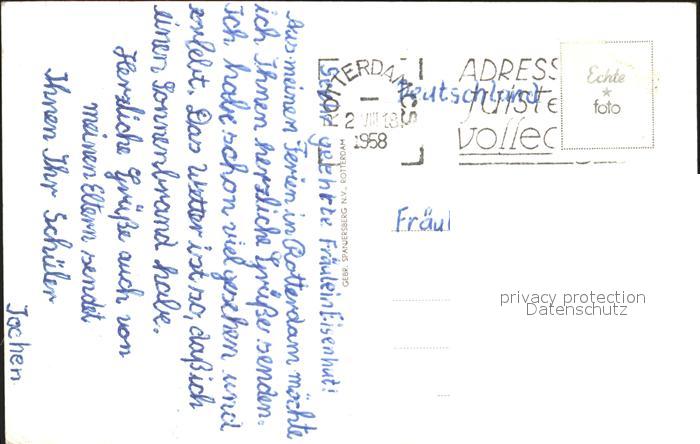 Sehr geehrte Fräulein Eisenhut!
Aus meinen Ferien in Rotterdam möchte
ich Ihnen herzliche Grüße senden.
Ich habe schon viel gesehen und
erlebt. Das Wetter ist so, daß ich
einen Sonnenbrand habe.
Herzliche Grüße auch von
meinen Eltern sendet
Ihnen Ihr Schüler
Jochen
ROTTERDAM CS
2 VIII 18
1958
ADRESS
JUISTE
VOLLED
Echte
foto
Deutschland
Fräul
GEBR. SPANJERSBERG N.V., ROTTERDAM
privacy protection
Datenschutz